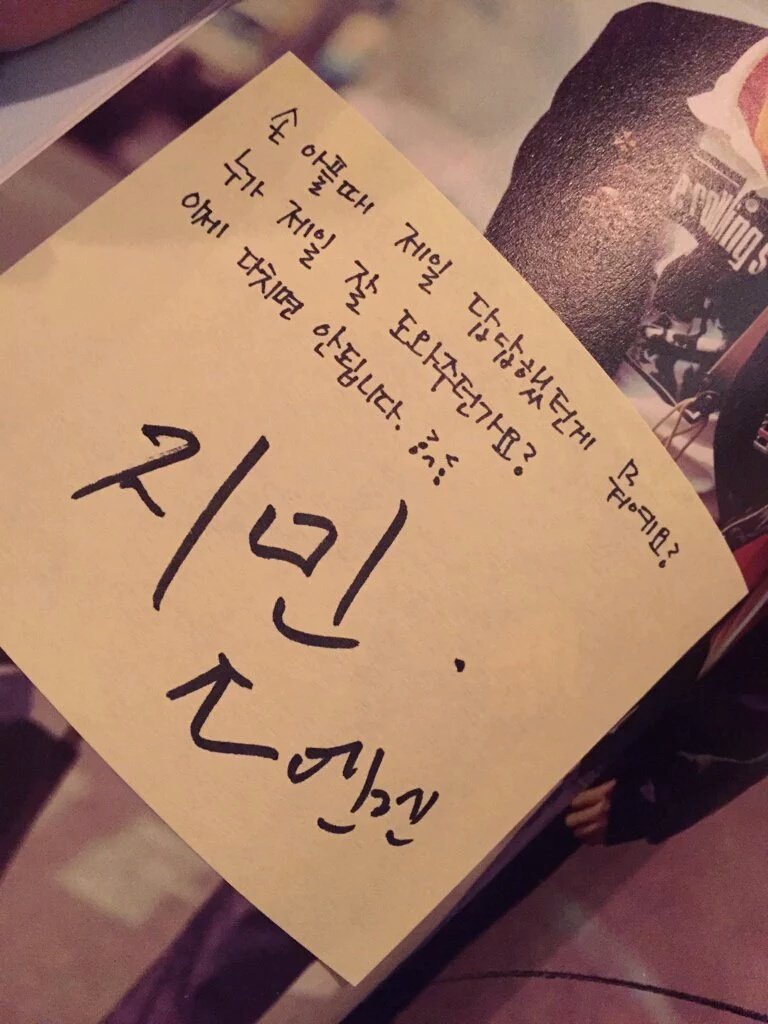 손 아플때 제일 답답했던게 뭐예요?
누가 제일 잘 도와주던가요?
이제 다치면 안됩니다.
지민.
e rolling s